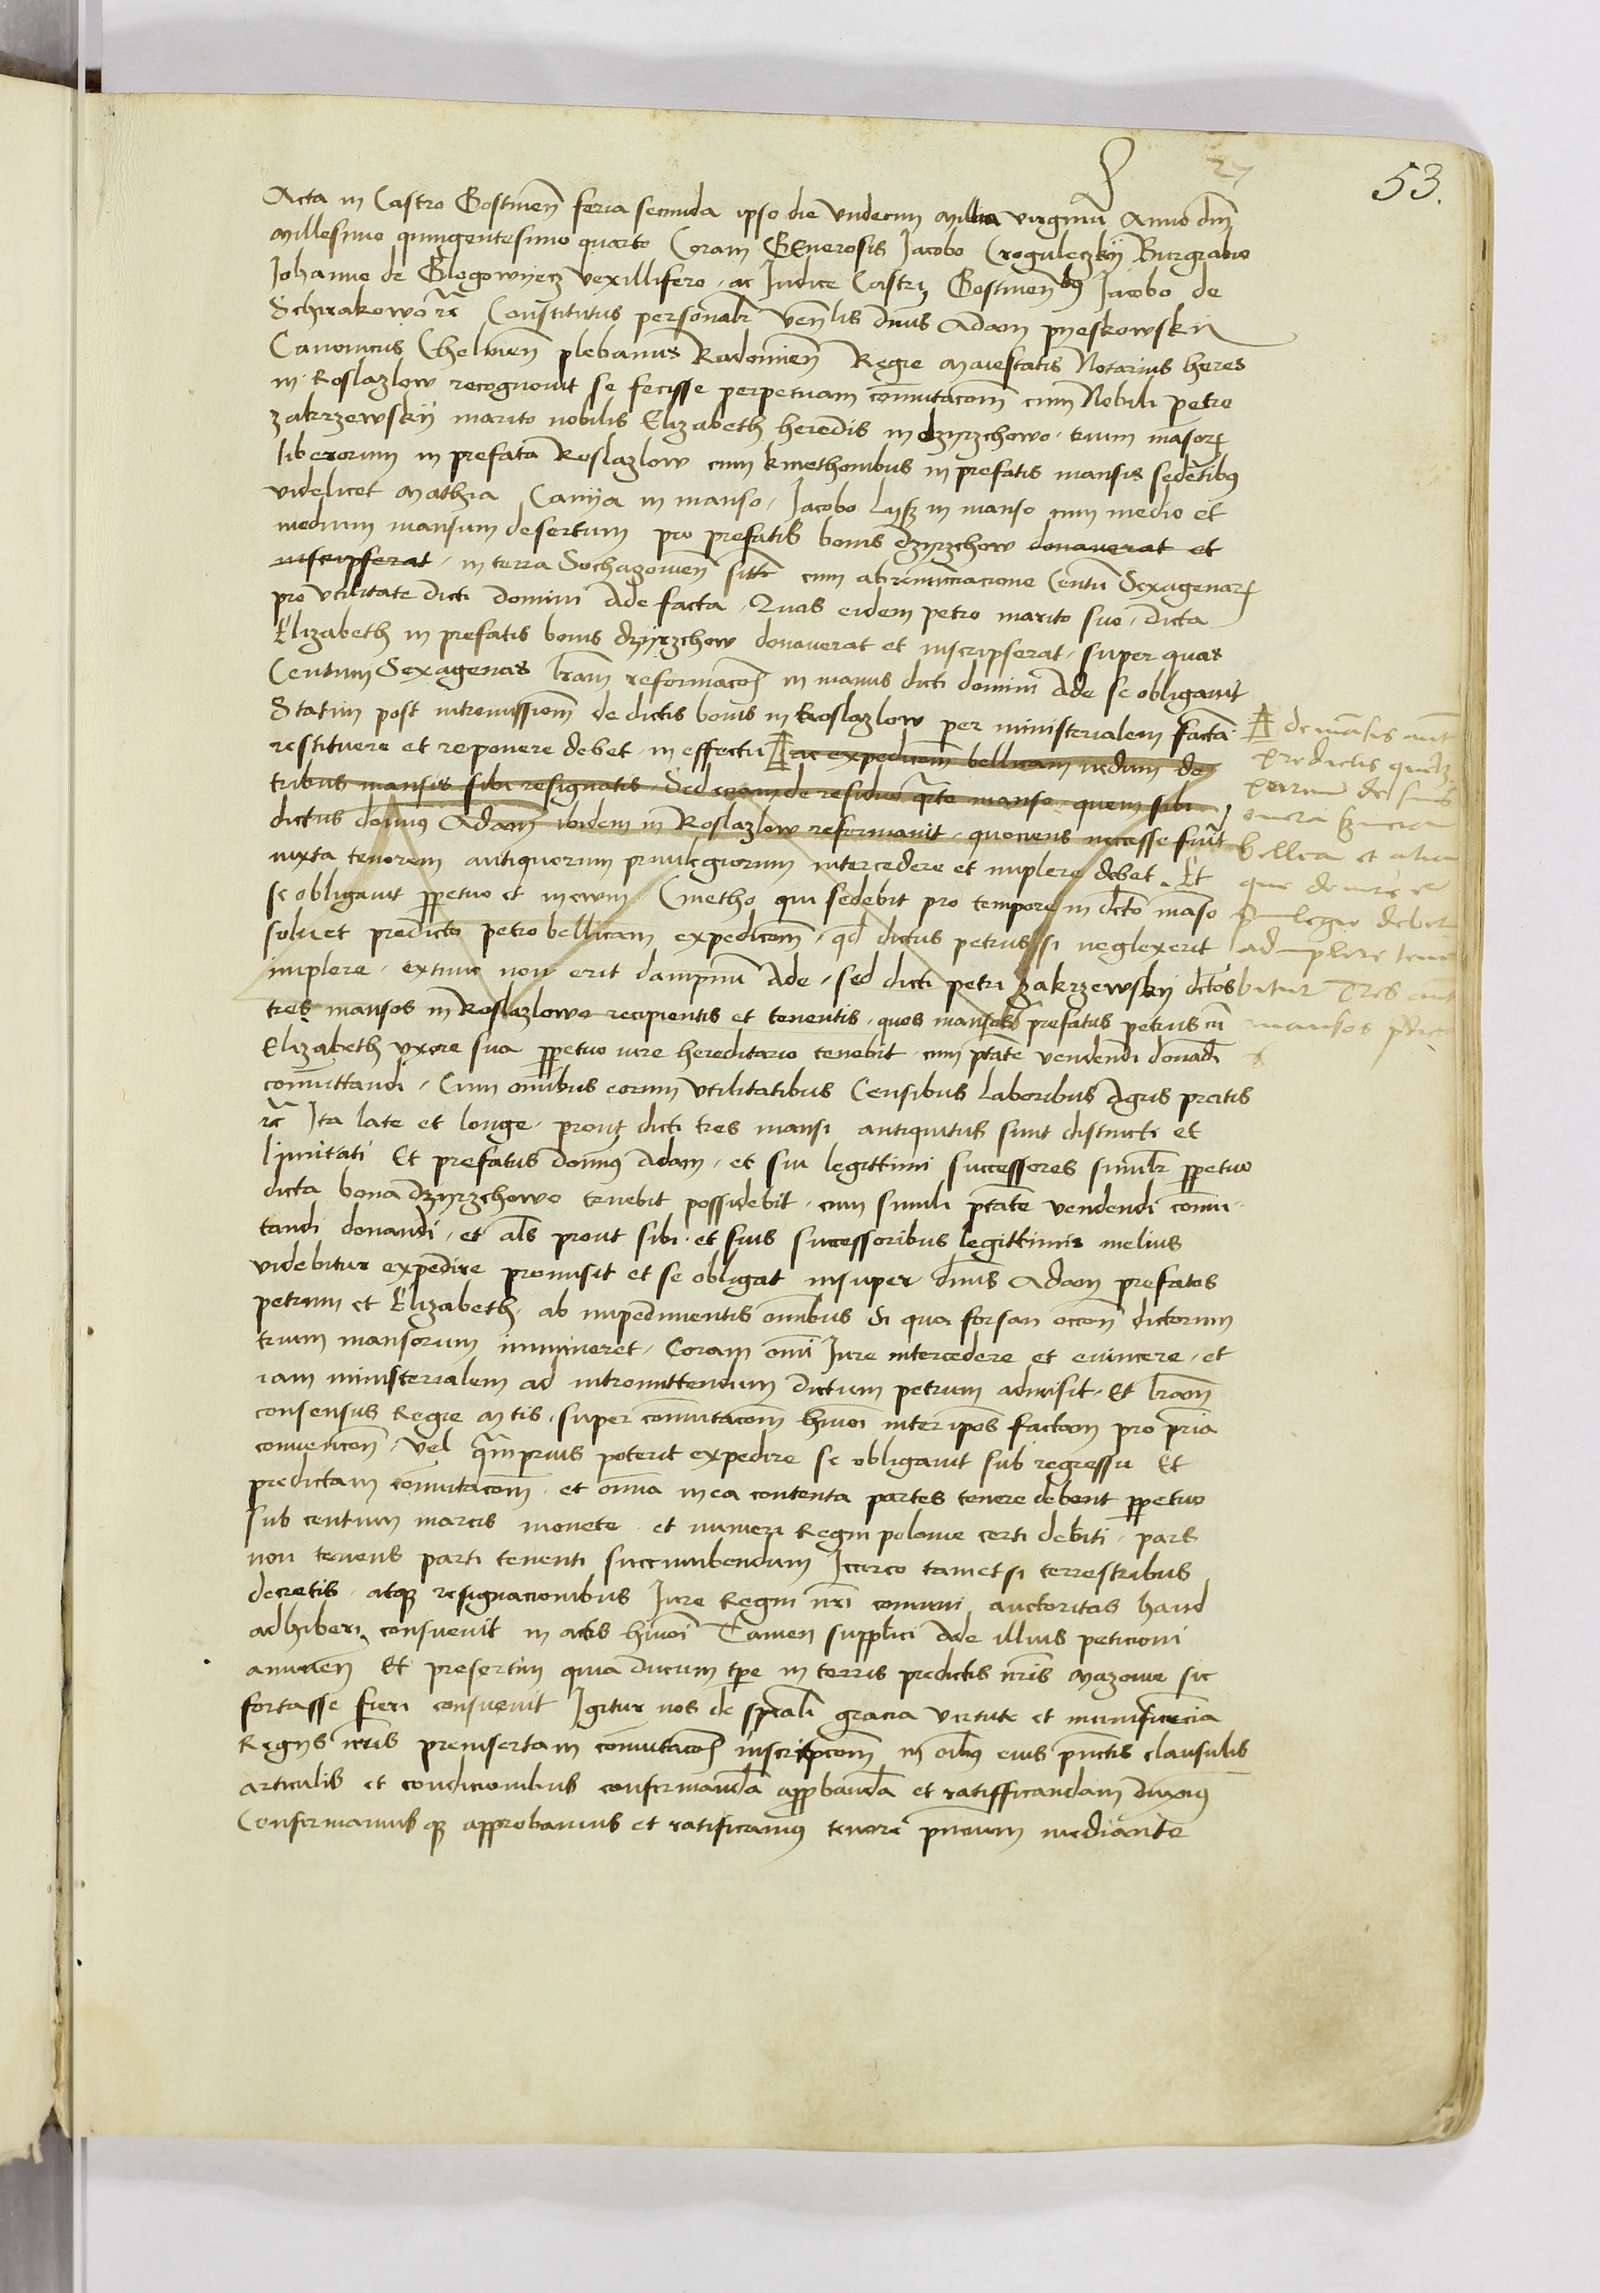 27
53.
Acta in Castro Gostinen feria secunda ipso die Undecim millia virginu Anno dni
Millesimo quingentesimo quarto Coram Generosis Jacobo Croguleczkij Burgrabio
Johanne de Glogowyecz vexillifero ac Judice Castri Gostinen Jacobo de
Schirakowo Constitutus personalr venlis dnus Adam pyeskowskij
Canonicus Chelmen plebanus Radomien Regie Maiestatis Notarius heres
in Roslazlow recognovit se fecisse perpetuam comutacom cum Nobili petro
zakrzewskij marito nobilis Elizabeth heredis in dzyrzchowo trium masorum
liberorum in prefata Roslazlow cum kmethonibus in prefatis mansis sedetibus
videlicet Mathia Canya in manso Jacobo lysz in manso cum medio et
medium mansum desertum pro prefatis bonis dzyrzchow donaverat et
inscripserat in terra Sochazovien sitis cum abrenuncciacione Centu Sexagenarum
pro utilitate dicti domini Ade facta Quas eidem petro marito suo dicta
Elizabeth in prefatis bonis dzyrzchow donaverat et inscripserat super quas
Centum Sexagenas lram reformacois in manus dicti domini Ade se obligavit
Statim post intromissiom de dictis bonis in Roslazlow per ministerialem facta
restituere et reponere debet in effectu A ac expedicom bellicam nedum de
tribus mansis sibi resignatis Sed eciam de residuo qrto manso quem sibi
dictus domnus Adam ibidem in Roslazlow reformavit quociens necesse fuit
iuxta tenorem antiquorum privilegiorum intercedere et implere debet Et
se obligavit ppetuo et inewm Cmetho qui sedebit pro tempore in dcto maso
solvet predicto petro bellicam expedicom qd dictus petrus si neglexerit
implere extunc non erit dampnu Ade sed dicti petri zakrzewskij dctos
tres mansos in Roslazlowo recipientis et tenentis quos mansos prefatus petrus cu
Elizabeth uxore sua ppetuo iure hereditario tenebit cum ptate vendendi donadi
comittandi Cum omibus eorum utilitatibus Censibus laboribus Agris pratis
Ita late et longe prout dicti tres mansi antiquitus sunt distincti et
limitati Et prefatus domnus Adam et sui legittimi successores similr ppetuo
dicta bona dzyrzchowo tenebit possidebit cum simili ptate vendendi comu
tandi donandi et als prout sibi et suis successoribus legittimis melius
videbitur expedire promisit et se obligat insuper dnus Adam prefatos
petrum et Elizabeth ab impedimentis omibus si qua forsan occon dictorum
trium mansorum immineret Coram omi Jure intercedere et evincere et
iam ministerialem ad intromittendum dictum petrum admisit Et lram
consensus Regie Mtis super comutacom hmoi inter ipos factam pro pria
convencon vel qmprius poterit expedire se obligavit sub regressu Et
predictam comutacom et omia in ea contenta partes tenere debent ppetuo
sub centum marcis monete et numeri Regni polonie certi debiti pars
non tenens parti tenenti succumbendum Iccirco tametsi terrestribus
decretis atque resignacionibus Jure Regni nri comuni auctoritas haud
adhiberi consuevit in actis hmoi Tamen supplici Ade illius peticioni
annuen Et presertim quia ducum tpe in terris predictis nris Mazovie sic
fortasse fieri consuevit Igitur nos de spcali gracia virtute et munificencia
Regijs nris preinsertam comutacois inscripcom in oibus eius punctis clausulis
articulis et condicionibus confirmanda appbanda et ratifficandam duximus
Confirmamusque approbamus et ratificamus tenore pncium mediante
A de masis aut
predictis quelz
parcium de suis
onera
bellica et alia
que de iure et
privilegio debet
adimplere tene
bitur Tres aut
mansos pdictos